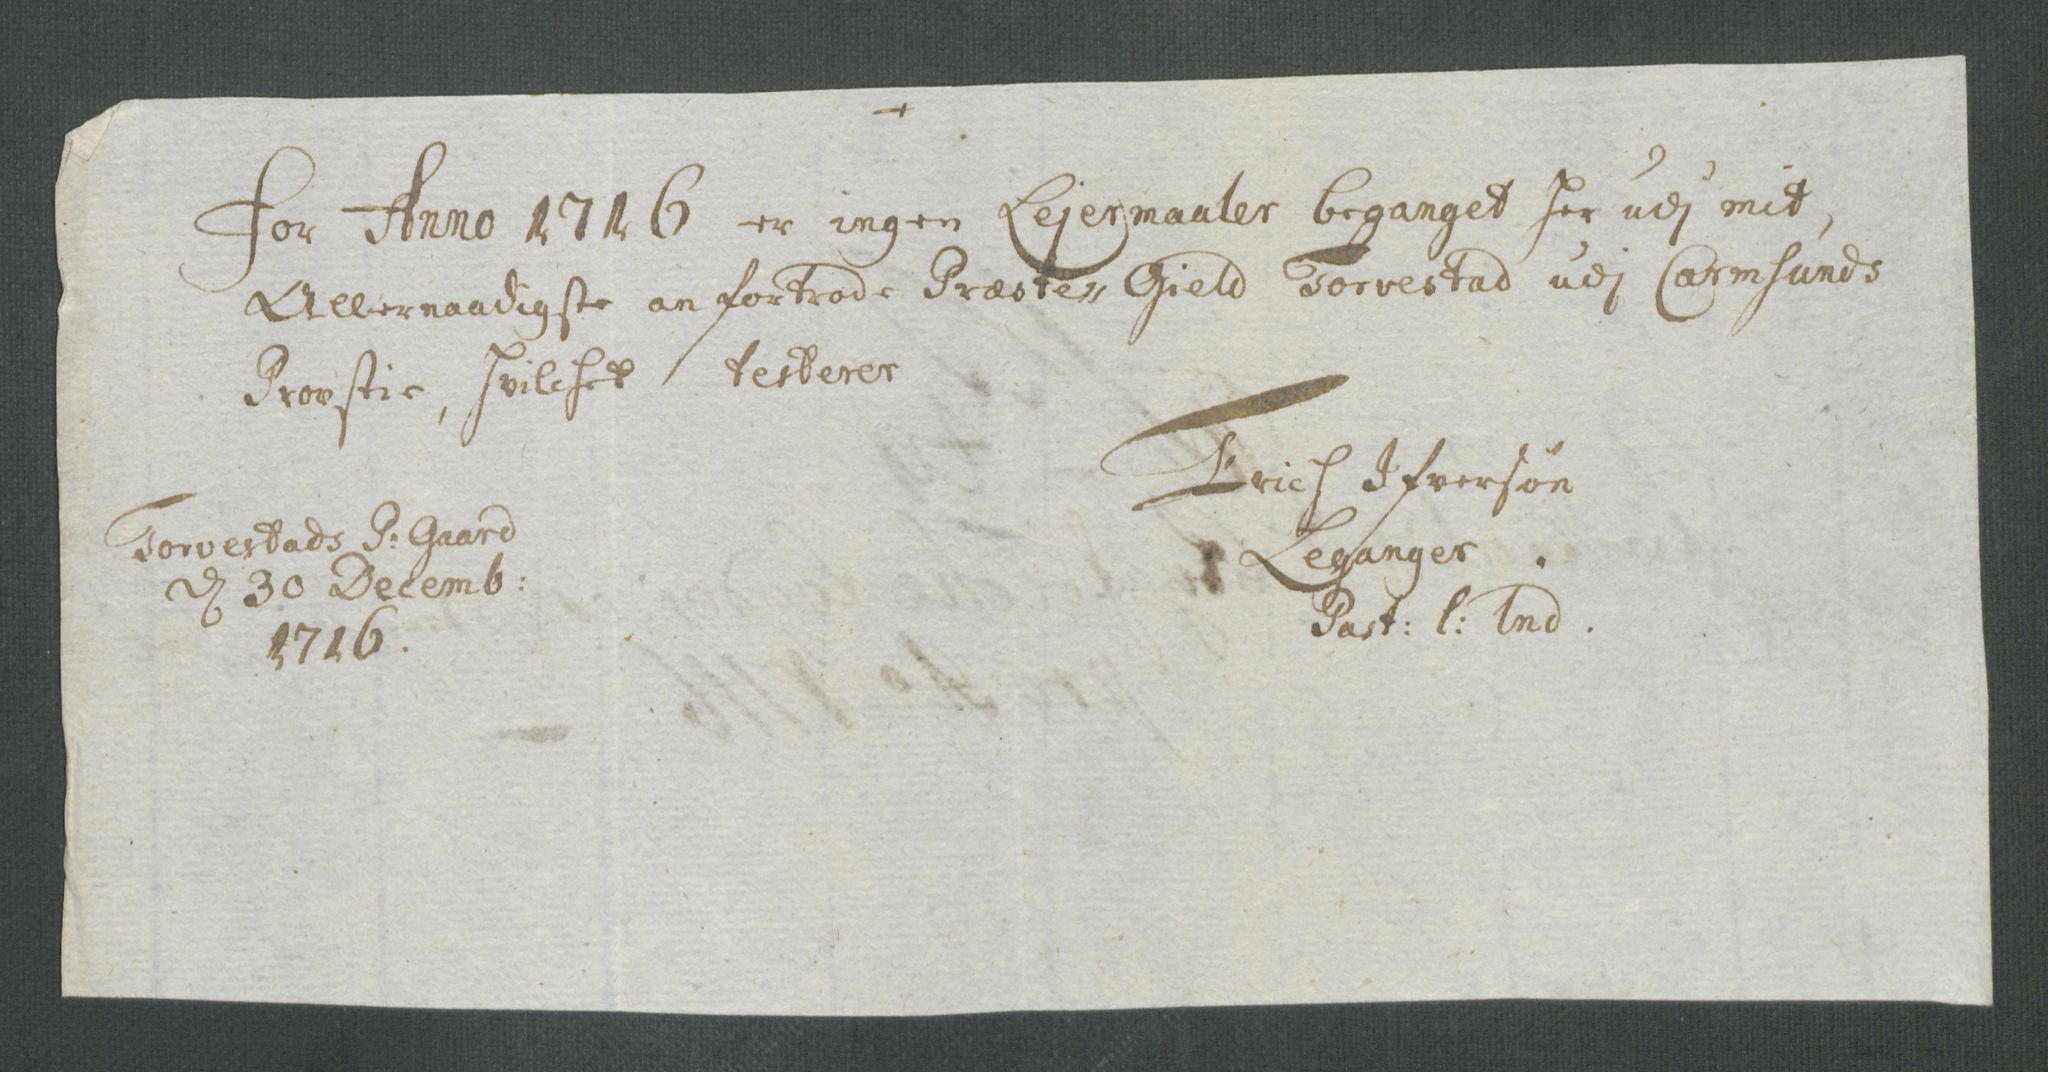 For Anno 1716 er ingen Lejermaaler beganget her udj mit,
Allernaadigste anfortrode Præste„ Gield Torvestad udj Carmsunds
Provstie, hvilchet testerer
Erich Ifversøn
Leganger.
Past: l: Ind.
Torvestads P: Gaard
d 30 Decemb:
1716.